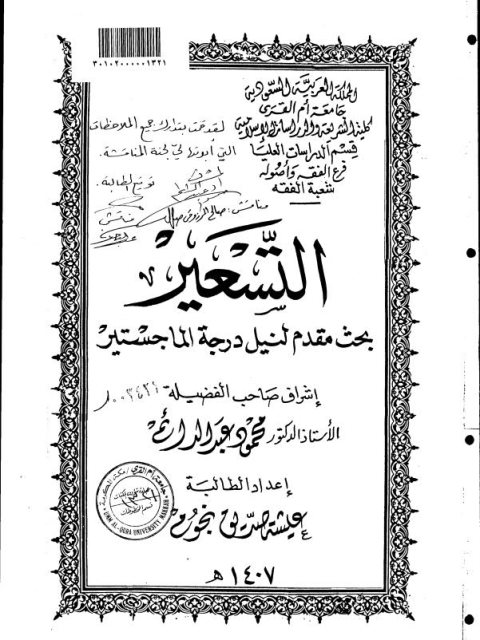 ٣٠١٠٢٠٠٠٠٠١٣٢١
المملكة العربية السعودية
جامعة أم القرى
كلية الشريعة والدراسات الإسلامية
قسم الدراسات العليا
فرع الفقه وأصوله
شعبة الفقه
لقد قمت بتدارك جميع الملاحظات
التي أبدتها لي لجنة المناقشة.
توقيع الطالبة.
التسعير
بحث مقدم لنيل درجة الماجستير
إشراف صاحب الفضيلة
الأستاذ الدكتور محمود عبد الدائم
إعداد الطالبة
عيشة صديق نجوم
جامعة أم القرى
UMM AL-QURA UNIVERSITY MAKKAH
١٤٠٧ هـ